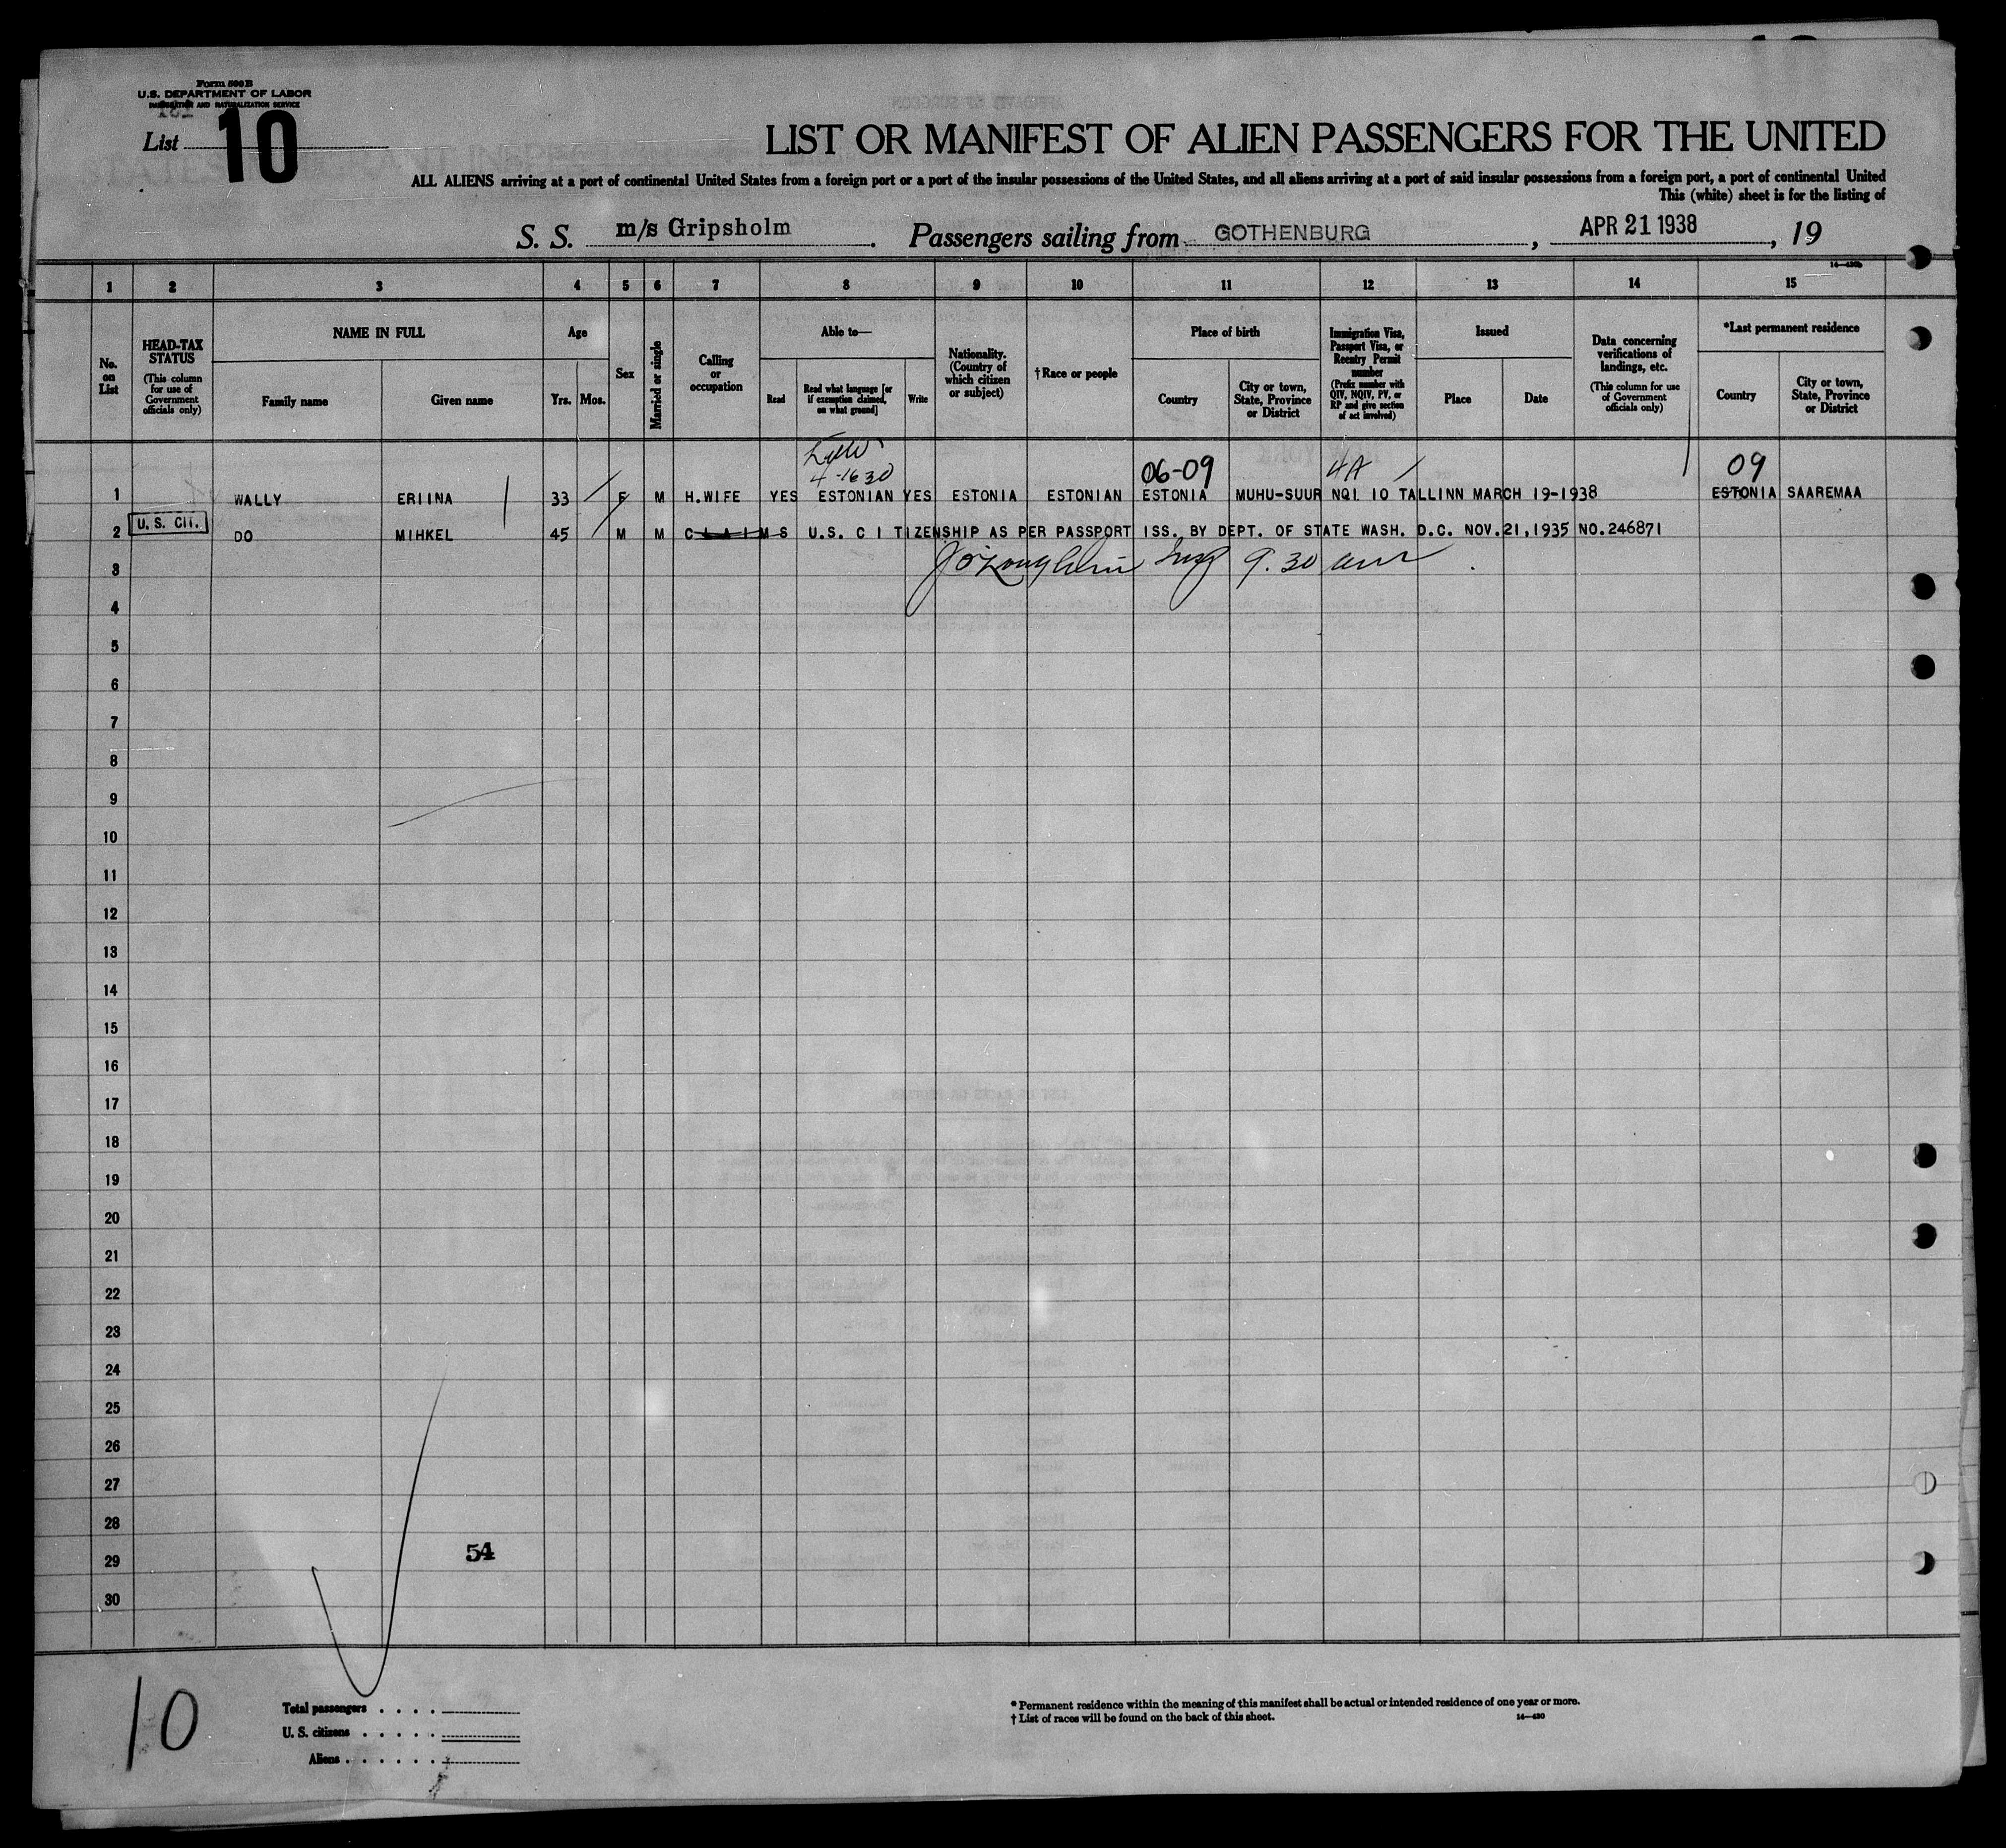 Form 500 B
U.S. DEPARTMENT OF LABOR
IMMIGRATION AND NATURALIZATION SERVICE
List 10
LIST OR MANIFEST OF ALIEN PASSENGERS FOR THE UNITED
ALL ALIENS arriving at a port of continental United States from a foreign port or a port of the insular possessions of the United States, and all aliens arriving at a port of said insular possessions from a foreign port, a port of continental United
This (white) sheet is for the listing of
S. S. m/s Gripsholm. Passengers sailing from GOTHENBURG, APR 21 1938, 19
14—430b
1 2 3 4 5 6 7 8 9 10 11 12 13 14 15
No. on List
HEAD-TAX STATUS (This column for use of Government officials only)
NAME IN FULL
Family name Given name
Age
Yrs. Mos.
Sex
Married or single
Calling or occupation
Able to—
Read Read what language [or if exemption claimed, on what ground] Write
Nationality. (Country of which citizen or subject)
†Race or people
Place of birth
Country City or town, State, Province or District
Immigration Visa, Passport Visa, or Reentry Permit number (Prefix number with QIV, NQIV, PV, or RP and give section of act involved)
Issued
Place Date
Data concerning verifications of landings, etc. (This column for use of Government officials only)
*Last permanent residence
Country City or town, State, Province or District
4-1630 06-09 4A 09
1 WALLY ERIINA 33 F M H.WIFE YES ESTONIAN YES ESTONIA ESTONIAN ESTONIA MUHU-SUUR NQI 10 TALLINN MARCH 19-1938 ESTONIA SAAREMAA
U. S. CIT.
2 DO MIHKEL 45 M M CLAIMS U.S. CITIZENSHIP AS PER PASSPORT ISS. BY DEPT. OF STATE WASH. D.C. NOV.21,1935 NO.246871
3 J O'Loughlin Insp 9.30 am
4
5
6
7
8
9
10
11
12
13
14
15
16
17
18
19
20
21
22
23
24
25
26
27
28
29 54
30
10
Total passengers . . . .
U. S. citizens . . . . .
Aliens . . . . . .
* Permanent residence within the meaning of this manifest shall be actual or intended residence of one year or more.
† List of races will be found on the back of this sheet.
14—430